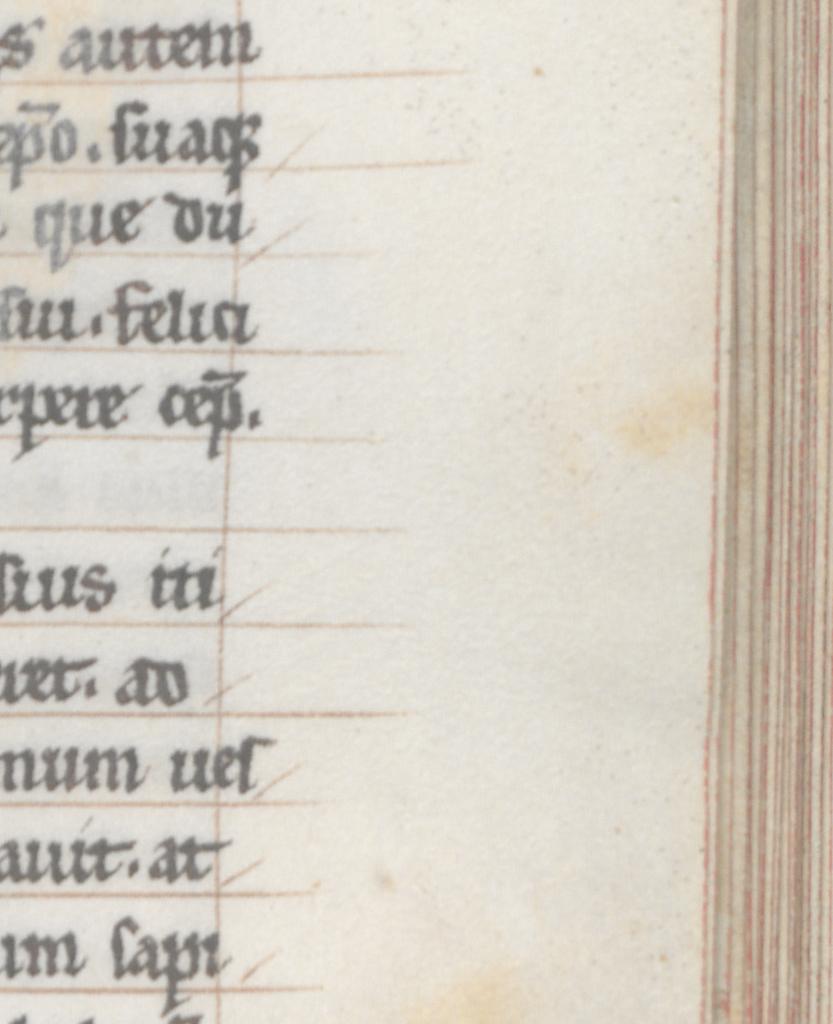 s autem
ep̄o. suaqꝫ
que dū
sui. felici
rpere cep̄.
sius iti
ret. ad
num ues
auit. at
um sapi